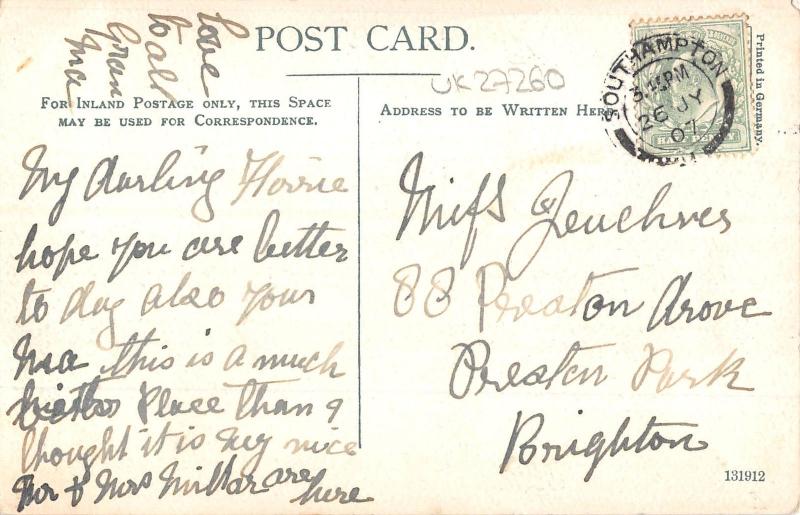 POST CARD.
love
to all
Gran
Ma
UK27260
FOR INLAND POSTAGE ONLY, THIS SPACE
MAY BE USED FOR CORRESPONDENCE.
ADDRESS TO BE WRITTEN HERE
SOUTHAMPTON
26 JY
07
HALFPENNY
Printed in Germany.
My darling Florrie
hope you are better
to day also your
Ma this is a much
better Place than I
thought it is very nice
Mr & Mrs Millar are
here
Miss
88 Preston Drove
Preston Park
Brighton
131912